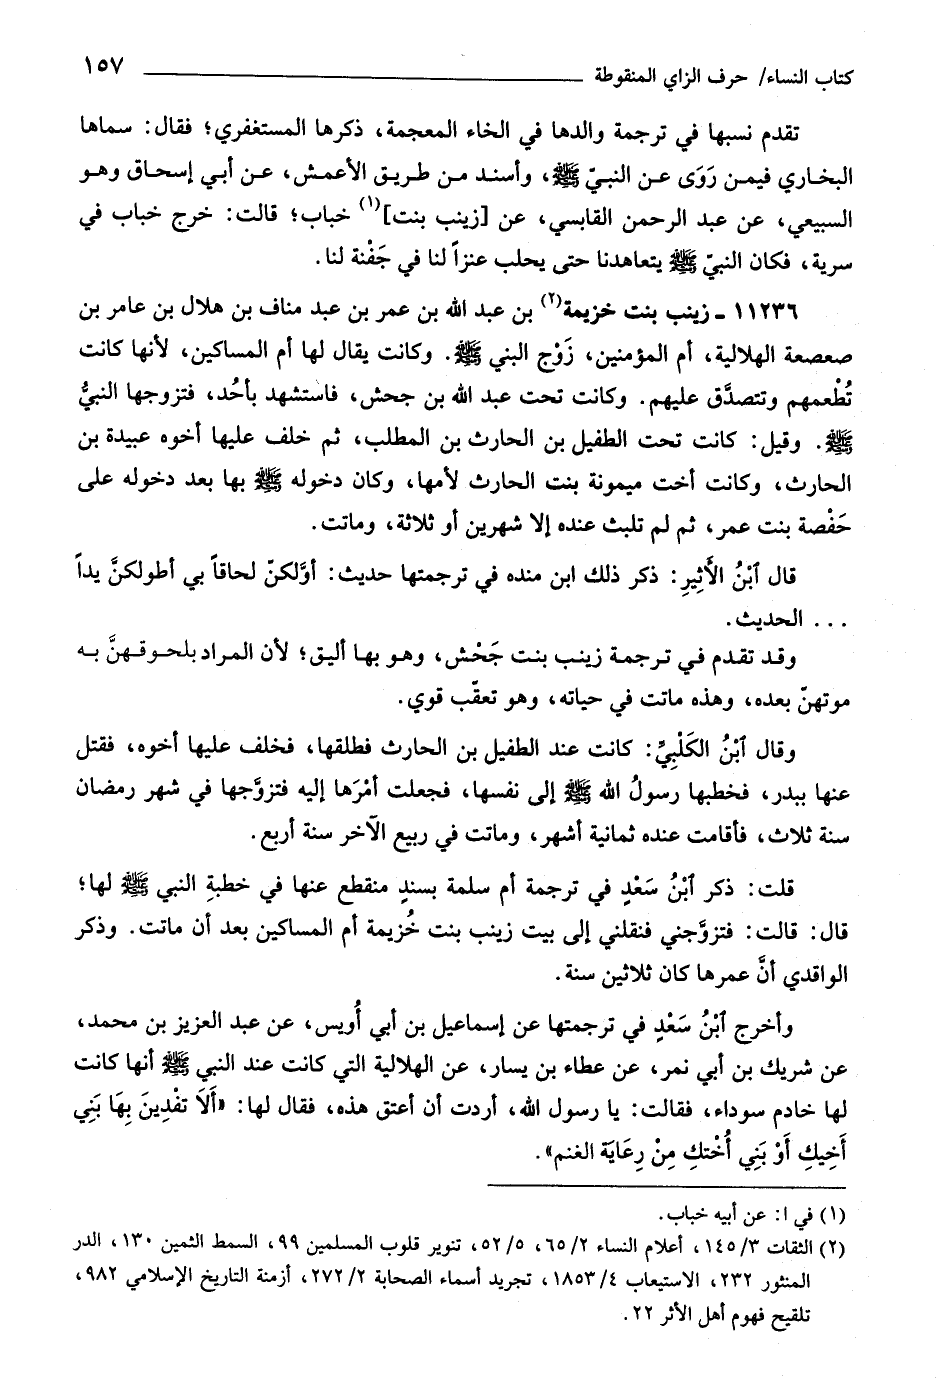 كتاب النساء/ حرف الزاي المنقوطة ١٥٧
تقدم نسبها في ترجمة والدها في الخاء المعجمة، ذكرها المستغفري؛ فقال: سماها
البخاري فيمن رَوَى عن النبيّ ﷺ، وأسند من طريق الأعمش، عن أبي إسحاق وهو
السبيعي، عن عبد الرحمن القابسي، عن [زينب بنت](١) خباب؛ قالت: خرج خباب في
سرية، فكان النبيّ ﷺ يتعاهدنا حتى يحلب عنزاً لنا في جَفْنة لنا.
١١٢٣٦ - زينب بنت خزيمة(٢) بن عبد الله بن عمر بن عبد مناف بن هلال بن عامر بن
صعصعة الهلالية، أم المؤمنين، زَوْج البني ﷺ. وكانت يقال لها أم المساكين، لأنها كانت
تُطْعمهم وتتصدَّق عليهم. وكانت تحت عبد الله بن جحش، فاستشهد بأحُد، فتزوجها النبيُّ
ﷺ. وقيل: كانت تحت الطفيل بن الحارث بن المطلب، ثم خلف عليها أخوه عبيدة بن
الحارث، وكانت أخت ميمونة بنت الحارث لأمها، وكان دخوله ﷺ بها بعد دخوله على
حَفْصة بنت عمر، ثم لم تلبث عنده إلا شهرين أو ثلاثة، وماتت.
قال ٱبْنُ الأَثِيرِ: ذكر ذلك ابن منده في ترجمتها حديث: أوَّلكنّ لحاقاً بي أطولكنَّ يداً
... الحديث.
وقد تقدم في ترجمة زينب بنت جَحْش، وهو بها أليق؛ لأن المراد بلحوقهنَّ به
موتهنّ بعده، وهذه ماتت في حياته، وهو تعقّب قوي.
وقال ٱبْنُ الكَلْبِيِّ: كانت عند الطفيل بن الحارث فطلقها، فخلف عليها أخوه، فقتل
عنها ببدر، فخطبها رسولُ الله ﷺ إلى نفسها، فجعلت أمْرَها إليه فتزوَّجها في شهر رمضان
سنة ثلاث، فأقامت عنده ثمانية أشهر، وماتت في ربيع الآخر سنة أربع.
قلت: ذكر ٱبْنُ سَعْدٍ في ترجمة أم سلمة بسندٍ منقطع عنها في خطبةِ النبي ﷺ لها؛
قال: قالت: فتزوَّجني فنقلني إلى بيت زينب بنت خُزيمة أم المساكين بعد أن ماتت. وذكر
الواقدي أنَّ عمرها كان ثلاثين سنة.
وأخرج ٱبْنُ سَعْدٍ في ترجمتها عن إسماعيل بن أبي أُويس، عن عبد العزيز بن محمد،
عن شريك بن أبي نمر، عن عطاء بن يسار، عن الهلالية التي كانت عند النبي ﷺ أنها كانت
لها خادم سوداء، فقالت: يا رسول الله، أردت أن أعتق هذه، فقال لها: «أَلاَ تفْدِينَ بِهَا بَنِي
أَخِيكِ أَوْ بَنِي أُخْتكِ مِنْ رِعَايَة الغنم».
(١) في ا: عن أبيه خباب.
(٢) الثقات ١٤٥/٣، أعلام النساء ٦٥/٢، ٥٢/٥، تنوير قلوب المسلمين ٩٩، السمط الثمين ١٣٠، الدر
المنثور ٢٣٢، الاستيعاب ١٨٥٣/٤، تجريد أسماء الصحابة ٢٧٢/٢، أزمنة التاريخ الإسلامي ٩٨٢،
تلقيح فهوم أهل الأثر ٢٢.